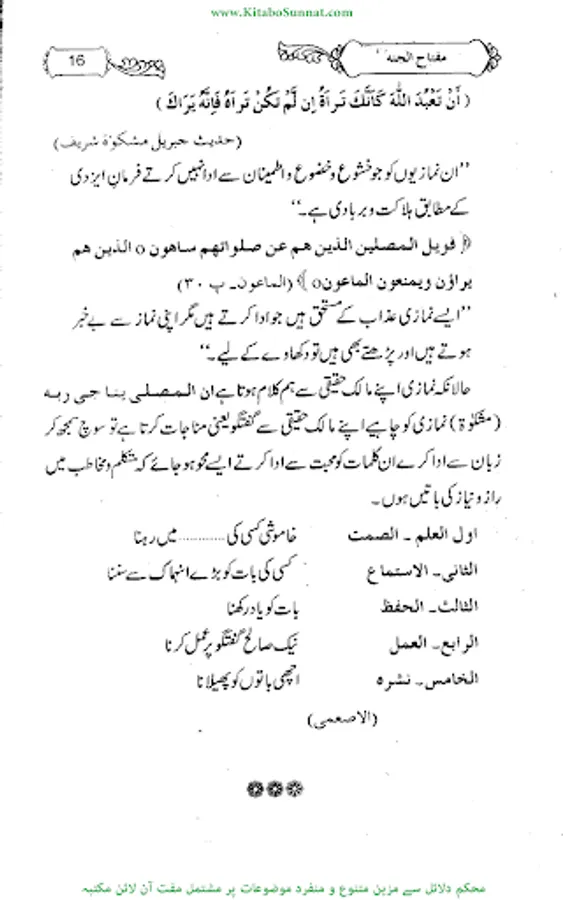 www.KitaboSunnat.com
16
مفتاح الجنة
( أَنْ تَعْبُدَ اللّٰهَ كَاَنَّكَ تَرَاهُ اِن لَّمْ تَكُنْ تَرَاهُ فَاِنَّهٗ يَرَاكَ )
(حدیث جبریل مشکوٰۃ شریف)
"ان نمازیوں کو جو خشوع و خضوع و اطمینان سے ادا نہیں کرتے فرمان ایزدی
کے مطابق ہلاکت و بربادی ہے۔"
﴿ فويل المصلين الذين هم عن صلواتهم ساهون o الذين هم
يراؤن ويمنعون الماعون o ﴾ (الماعون۔ پ ۳۰)
"ایسے نمازی عذاب کے مستحق ہیں جو ادا کرتے ہیں مگر اپنی نماز سے بے خبر
ہوتے ہیں اور پڑھتے بھی ہیں تو دکھاوے کے لیے۔"
حالانکہ نمازی اپنے مالک حقیقی سے ہم کلام ہوتا ہے ان المصلی ینا جی ربہ
(مشکوٰۃ) نمازی کو چاہیے اپنے مالک حقیقی سے گفتگو یعنی مناجات کرتا ہے تو سوچ سمجھ کر
زبان سے ادا کرے ان کلمات کو محبت سے ادا کرتے ایسے محو ہو جائے کہ متکلم و مخاطب میں
راز و نیاز کی باتیں ہوں۔
اول العلم ۔ الصمت خاموشی کسی کی ............ میں رہنا
الثانی۔ الاستماع کسی کی بات کو بڑے انہماک سے سننا
الثالث۔ الحفظ بات کو یاد رکھنا
الرابع۔ العمل نیک صالح گفتگو پر عمل کرنا
الخامس۔ نشره اچھی باتوں کو پھیلانا
(الاصمعی)
محکم دلائل سے مزین متنوع و منفرد موضوعات پر مشتمل مفت آن لائن مکتبہ